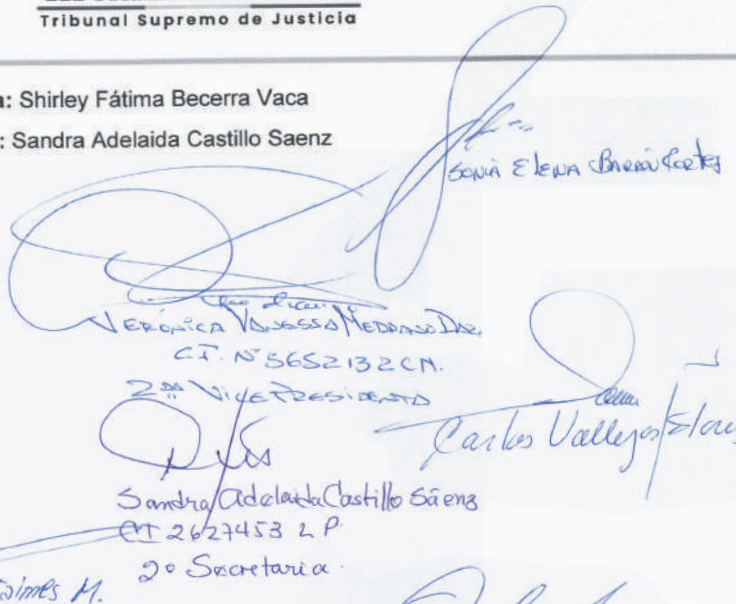 Tribunal Supremo de Justicia
a: Shirley Fátima Becerra Vaca
: Sandra Adelaida Castillo Saenz
SONIA ELENA BARRÓN CORTEZ
VERÓNICA VANESSA MEDRANO
C.I. Nº 5652132 CH.
2DA VICEPRESIDENTA
Carlos Vallejos Flores
Sandra Adelaida Castillo Sáenz
CI 2627453 L P.
2º Secretaria
M.